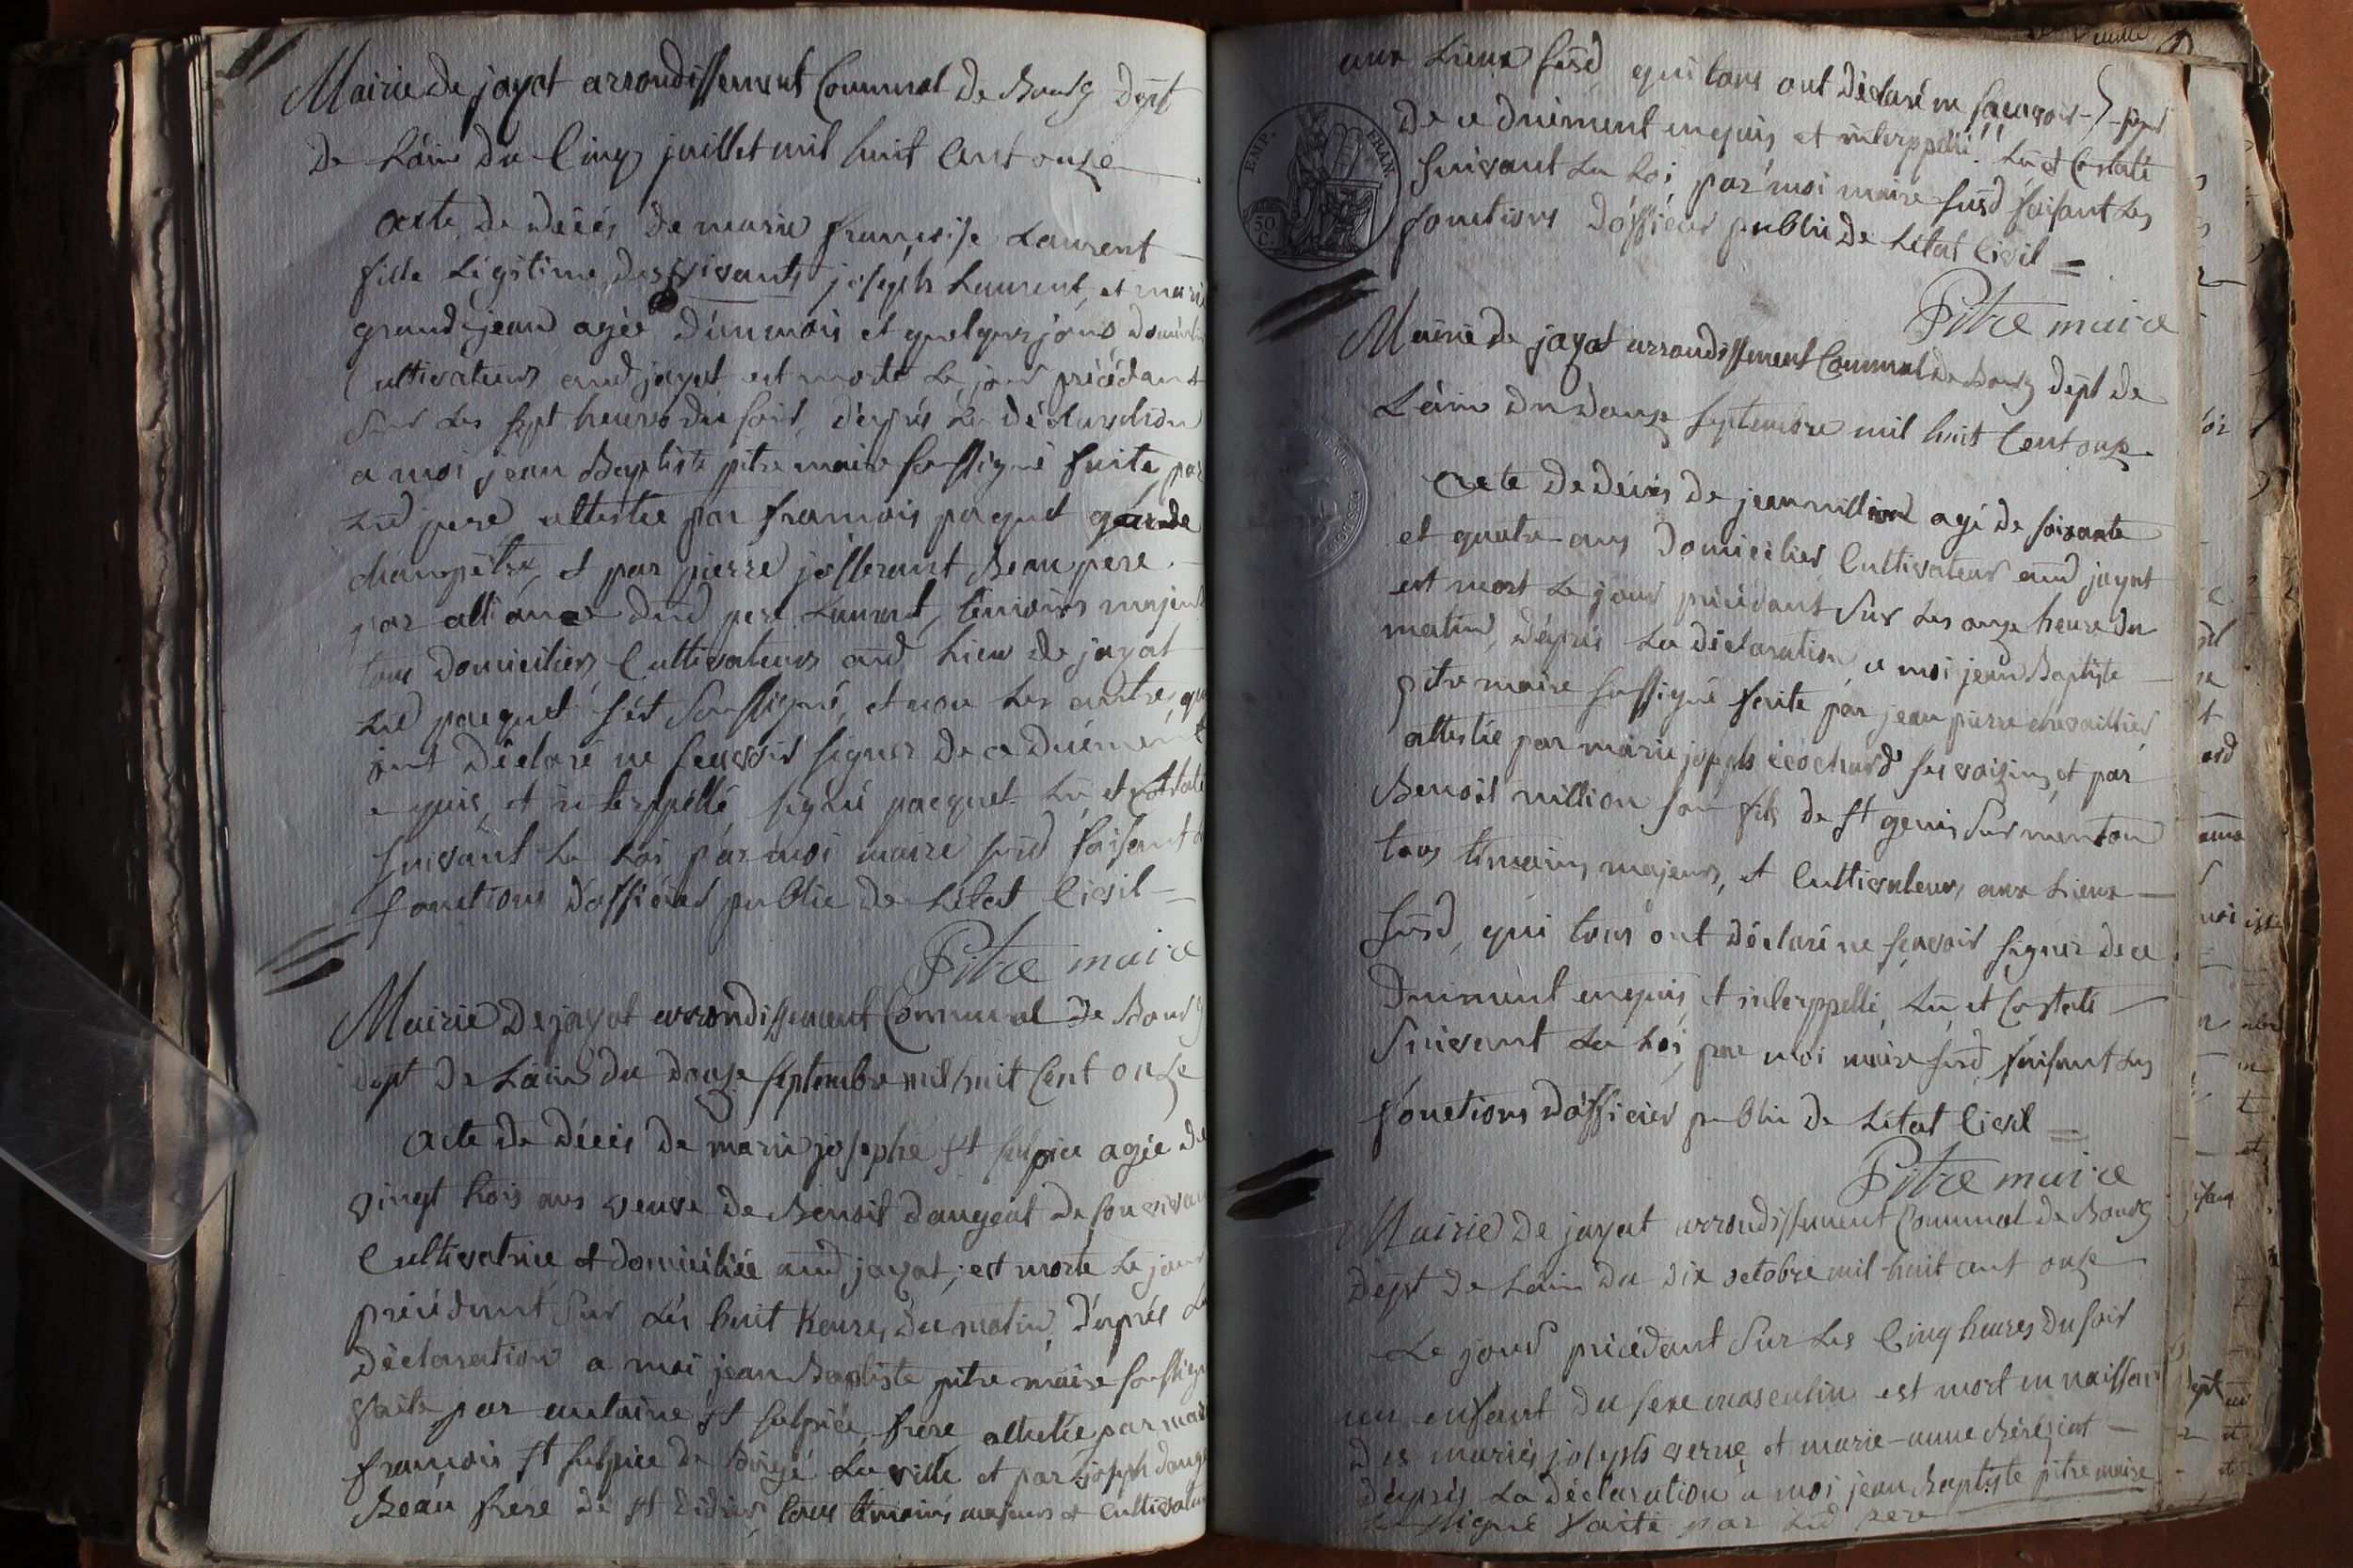 Mairie de jayat arrondissement Communal de Bourg dept
de Lain du Cinq juillet mil huit Cent onze
acte de décés de marie françoise Laurent
fille Légitime des vivants joseph Laurent, et marie
grand-jean agée d'un mois et quelques jours
Cultivateurs aud jayat est morte Le jour précédant
Sur Les sept heures du soir, d'après La déclaration
a moi jean Baptiste pitre maire soussigné faite, par
Led pere attestée par francois paquet garde
champêtre, et par pierre josserant Beau pere
par alliance dud pere Laurent, témoins majeurs
tous domiciliés Cultivateurs aud Lieu de jayat
Led paquet s'est Soussigné, et non Les autres, qui
ont déclaré ne sçavoir signer de ce duement
enquis, et interppellé signé pacquet Lu, et Costaté
suivant La Loi par moi maire susd faisant Les
fonctions d'officier public de Létat Civil
Pitre maire
Mairie de jayat arrondissement Communal de Bourg
dept de Lain du douze septembre mil huit Cent onze
acte de décés de marie josephe st sulpice agée de
vingt trois ans veuve de Benoit dangeat de son vivant
Cultivatrice et domiciliée aud jayat, est morte Le jour
précédant Sur Lés huit heures du matin, d'après La
déclaration a moi jean Baptiste pitre maire soussigné
faite par antoine st sulpice, frere attestée par
francois st sulpice de La ville et par joseph
Beau frere de st didier, tous témoins majeurs et Cultivateurs
aux Lieux susd qui tous ont déclaré ne sçavoir signer
de ce duiment enquis et interppellé Lu et Costaté
suivant La Loi par moi maire susd faisant Les
fonctions d'officier public de Létat Civil
EMP. FRAN.
50 C.
Pitre maire
Mairie de jayat arrondissement Communal de Bourg dept de
Lain du douze septembre mil huit Cent onze
acte de décés de jean million agé de soixante
et quatre ans domicilier Cultivateur aud jayat
est mort Le jour précédant Sur Les onze heure du
matin, d'après La déclaration a moi jean Baptiste
pitre maire soussigné faite par jean pierre chevaillier
attestée par marie joseph écochard ses voisins, et par
Benoit million son fils de st genis Sur menton
tous témoins majeurs, et Cultivateurs aux Lieux
susd, qui tous ont déclaré ne sçavoir signer de ce
duiment enquis, et interppellé, Lu et Costaté
Suivant La Loi, par moi maire susd, faisant Les
fonctions d'officier public de Létat Civil
Pitre maire
Mairie de jayat arrondissement Communal de Bourg
dept de Lain du dix octobre mil huit cent onze
Le jour précédant Sur Les Cinq heures du soir
un enfant du sexe masculin est mort en naissant
des mariés joseph verne, et marie-anne
d'après La déclaration a moi jean Baptiste pitre maire
soussigné faite par Led pere